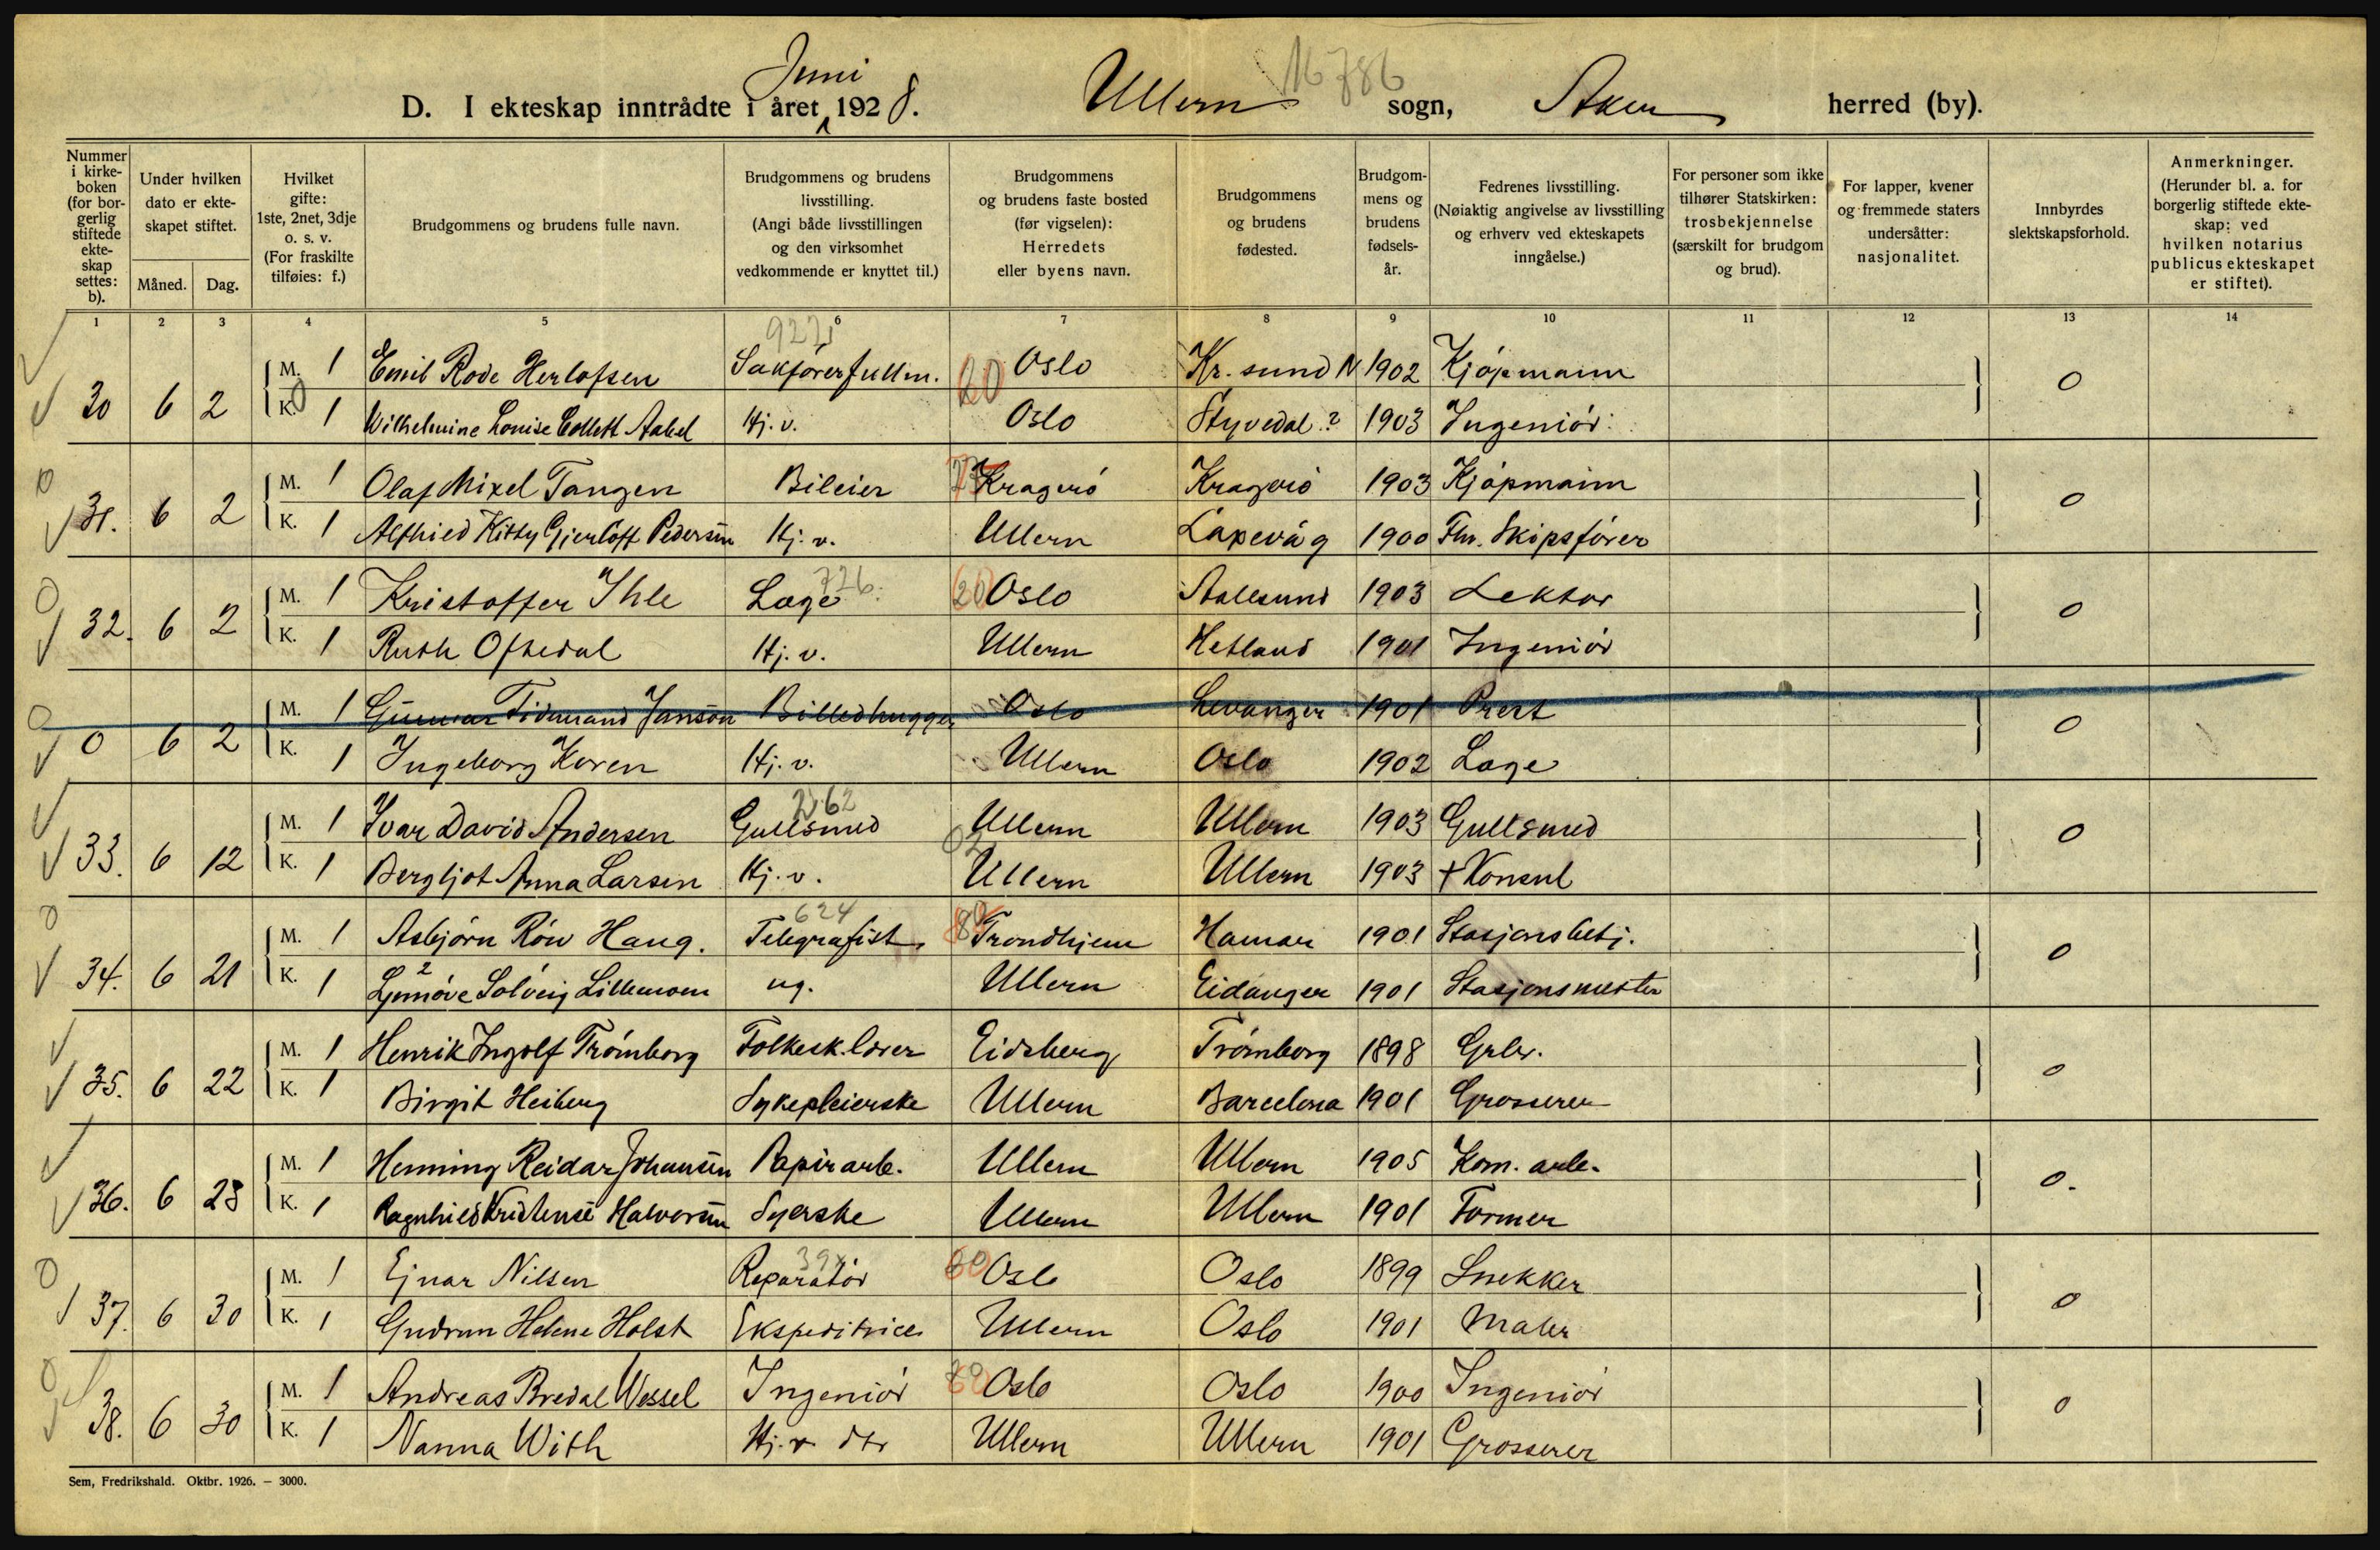 16786
Juni
D. I ekteskap inntrådte i året 1928. Ullern sogn, Aker herred (by).
Nummer i kirkeboken (for borgerlig stiftede ekteskap settes: b).
Under hvilken dato er ekteskapet stiftet.
Måned. Dag.
Hvilket gifte: 1ste, 2net, 3dje o. s. v. (For fraskilte tilføies: f.)
Brudgommens og brudens fulle navn.
Brudgommens og brudens livsstilling. (Angi både livsstillingen og den virksomhet vedkommende er knyttet til.)
Brudgommens og brudens faste bosted (før vigselen): Herredets eller byens navn.
Brudgommens og brudens fødested.
Brudgommens og brudens fødselsår.
Fedrenes livsstilling. (Nøiaktig angivelse av livsstilling og erhverv ved ekteskapets inngåelse.)
For personer som ikke tilhører Statskirken: trosbekjennelse (særskilt for brudgom og brud).
For lapper, kvener og fremmede staters undersåtter: nasjonalitet.
Innbyrdes slektskapsforhold.
Anmerkninger. (Herunder bl. a. for borgerlig stiftede ekteskap: ved hvilken notarius publicus ekteskapet er stiftet).
1 2 3 4 5 6 7 8 9 10 11 12 13 14
30 6 2 M. 1 Emil Rode Herlofsen Sakførerfullm. Oslo Kr. sund N 1902 Kjøpmann 0
K. 1 Wilhelmine Louise Collett Aabel Hj. v. Oslo Styvedal? 1903 Ingeniør
31. 6 2 M. 1 Olaf Mixel Tangen Bileier Kragerø Kragerø 1903 Kjøpmann 0
K. 1 Alfhild Kitty Gjerløff Pedersen Hj. v. Ullern Laxevåg 1900 Fhv. Skipsfører
32. 6 2 M. 1 Kristoffer Ihle Læge 726 20 Oslo Aalesund 1903 Lektor 0
K. 1 Ruth Oftedal Hj. v. Ullern Hetland 1901 Ingeniør
0 6 2 M. 1 Gunnar Tidmand Janson Billedhugger Oslo Levanger 1901 Prest 0
K. 1 Ingeborg Koren Hj. v. Ullern Oslo 1902 Læge
33. 6 12 M. 1 Ivar David Andersen Gullsmed Ullern Ullern 1903 Gullsmed 0
K. 1 Bergljot Anna Larsen Hj. v. Ullern Ullern 1903 + Konsul
34. 6 21 M. 1 Asbjørn Røw Haug. Telegrafist 624 Trondhjem Hamar 1901 Stasjonsbetj. 0
K. 1 Synnøve Solveig Lillemoen ug. Ullern Eidanger 1901 Stasjonsmester
35. 6 22 M. 1 Henrik Ingolf Trømborg Folkesk. lærer Eidsberg Trømborg 1898 Grbr. 0
K. 1 Birgit Heiberg Sykepleierske Ullern Barcelona 1901 Grosserer
36. 6 23 M. 1 Henning Reidar Johansen Papirarb. Ullern Ullern 1905 Kom. arb. 0.
K. 1 Ragnhild Kristense Halvorsen Syerske Ullern Ullern 1901 Former
37. 6 30 M. 1 Ejnar Nilsen Reparatør Oslo Oslo 1899 Snekker 0
K. 1 Gudrun Helene Holst Ekspeditrice Ullern Oslo 1901 Maler
38. 6 30 M. 1 Andreas Bredal Wessel Ingeniør Oslo Oslo 1900 Ingeniør 0
K. 1 Nanna With Hj. v. dtr Ullern Ullern 1901 Grosserer
Sem, Fredrikshald. Oktbr. 1926. — 3000.